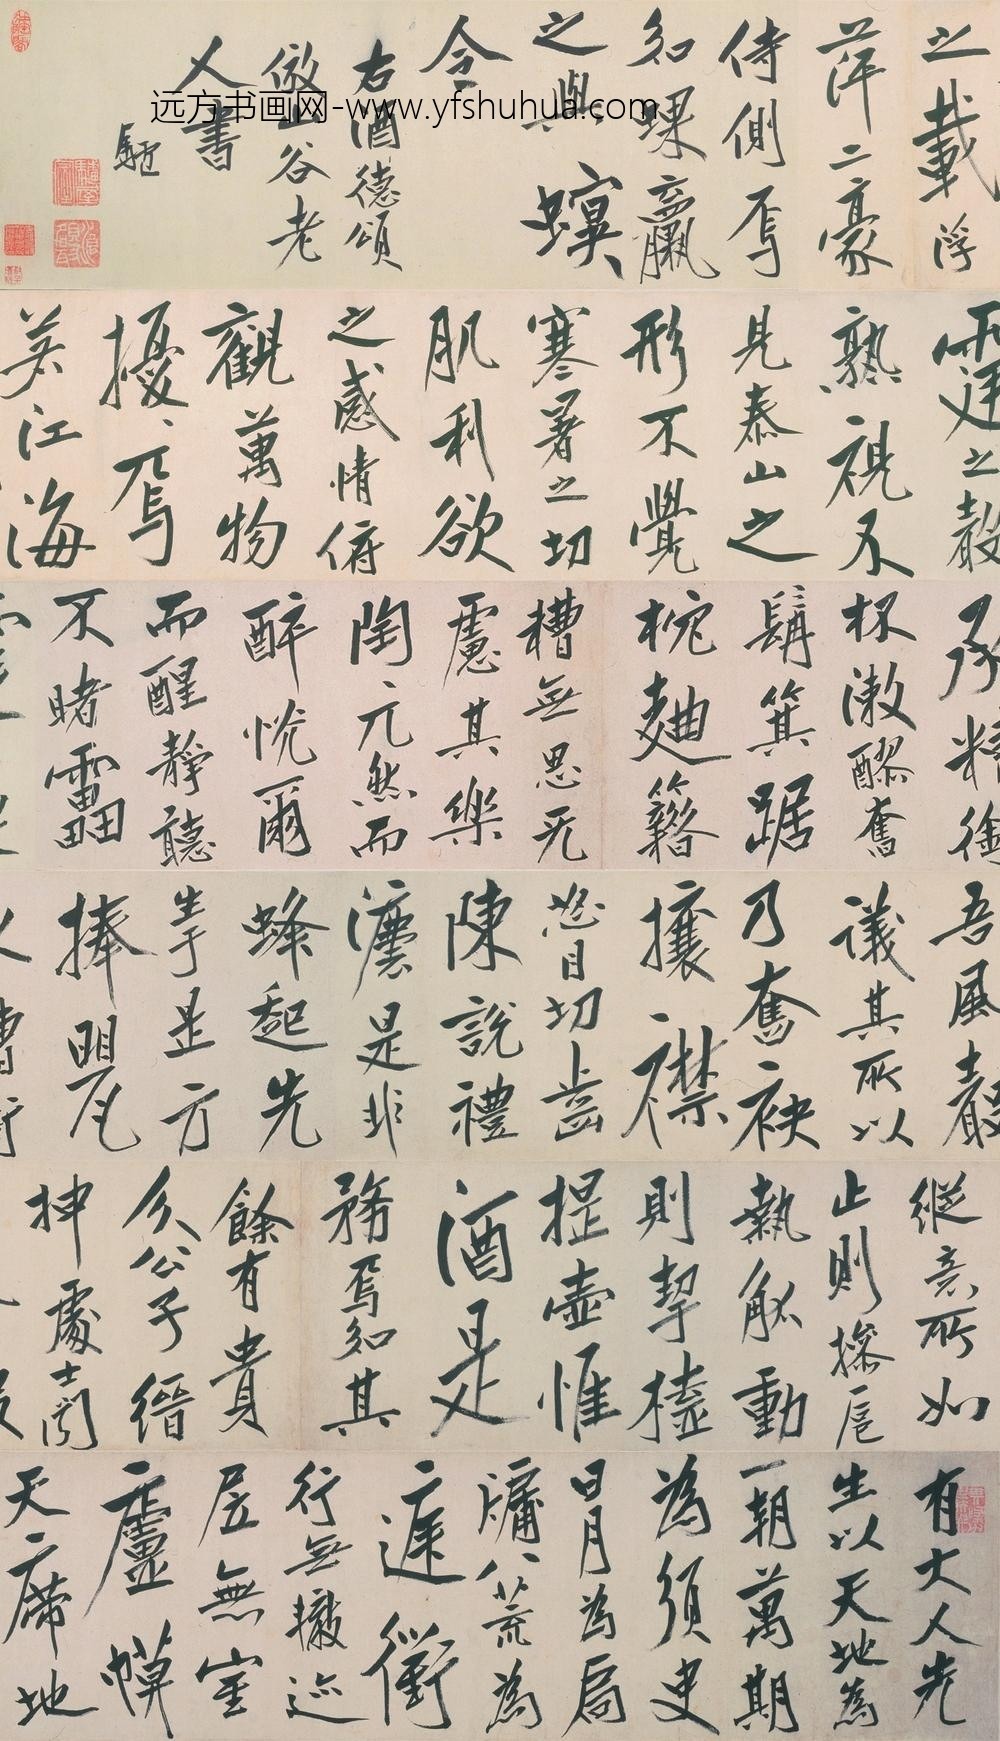 有大人先
生以天地為
一朝萬期
為須臾
日月為扃
牖八荒為
庭衢
行無轍迹
居無室
廬幙
天席地
縱意所如
止則操卮
執觚動
則挈榼
提壺惟
酒是
務焉知其
餘有貴
介公子縉
紳處士聞
吾風聲
議其所以
乃奮袂
攘襟
怒目切齒
陳說禮
灋是非
蜂起先
生于是方
捧罌
承糟銜
杯漱醪奮
髯箕踞
枕麴籍
糟無思无
慮其樂
陶兀然而
醉恍爾
而醒靜聽
不睹雷
霆之聲
熟視不
見泰山之
形不覺
寒暑之切
肌利欲
之感情俯
觀萬物
擾、焉
若江海
之載浮
萍二豪
侍側焉
知蜾蠃
之與螟
令
右酒德頌
倣山谷老
人書
远方书画网-www.yfshuhua.com